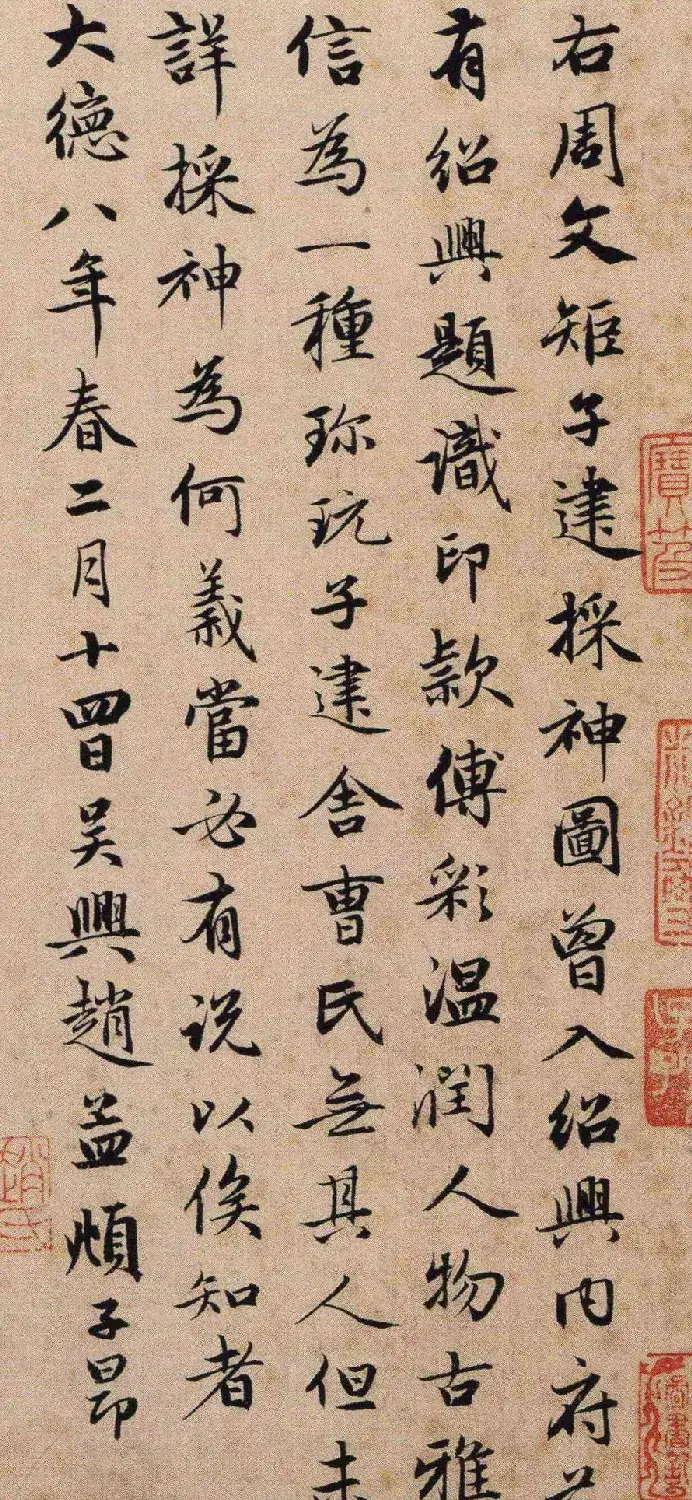 右周文矩子建採神圖曾入紹興内府
有紹興題識印款傅彩温潤人物古雅
信為一種珎玩子建舍曹氏無其人但未
詳採神為何義當必有説以俟知者
大德八年春二月十四日吴興趙孟頫子昂